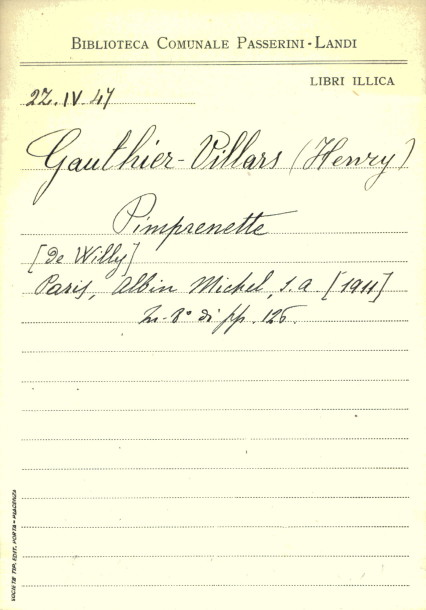 BIBLIOTECA COMUNALE PASSERINI-LANDI
LIBRI ILLICA
22.IV.47
Gauthier-Villars (Henry)
Pimprenette
[de Willy]
Paris, Albin Michel, s.a. [1911]
In-8° di pp. 126.
SOCIETÀ TIP. EDIT. PORTA - PIACENZA